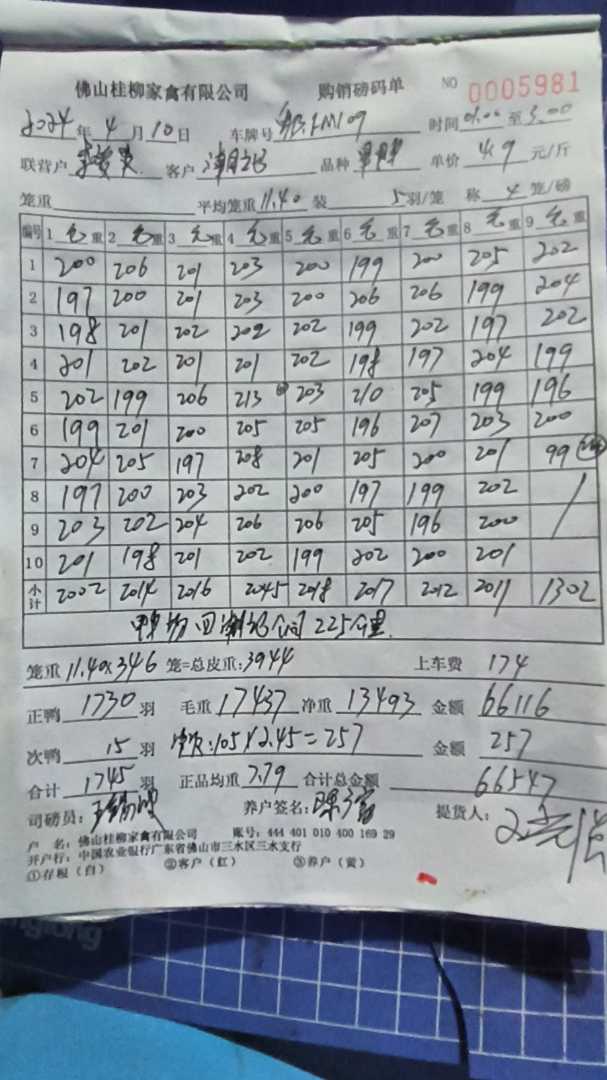 佛山桂柳家禽有限公司 购销磅码单 NO 0005981
2024年 4月 10日 车牌号 时间 至 3:00
联营户 客户 品种 单价 4.9 元/斤
笼重 平均笼重 11.40 装 5羽/笼 称 4笼/磅
编号 1 毛重 2 毛重 3 毛重 4 毛重 5 毛重 6 毛重 7 毛重 8 毛重 9 毛重
1 200 206 201 203 200 199 200 205 202
2 197 200 201 203 200 206 206 199 204
3 198 201 202 202 202 199 202 197 202
4 201 202 201 201 202 198 197 204 199
5 202 199 206 213 203 210 205 199 196
6 199 201 200 205 205 196 207 203 200
7 204 205 197 208 201 205 200 201 99
8 197 200 203 202 200 197 199 202
9 203 202 204 206 206 205 196 200
10 201 198 201 202 199 202 200 201
小计 2002 2014 2016 2045 2018 2017 2012 2011 1302
回 公司 225公里
笼重 11.40×346 笼=总皮重:3944 上车费 174
正鸭 1730 羽 毛重 17437 净重 13493 金额 66116
次鸭 15 羽 :105×2.45=257 金额 257
合计 1745 羽 正品均重 7.79 合计总金额 66547
司磅员: 养户签名: 提货人:
户 名:佛山桂柳家禽有限公司 账号:444 401 010 400 169 29
开户行:中国农业银行广东省佛山市三水区三水支行
①存根(白) ②客户(红) ③养户(黄)